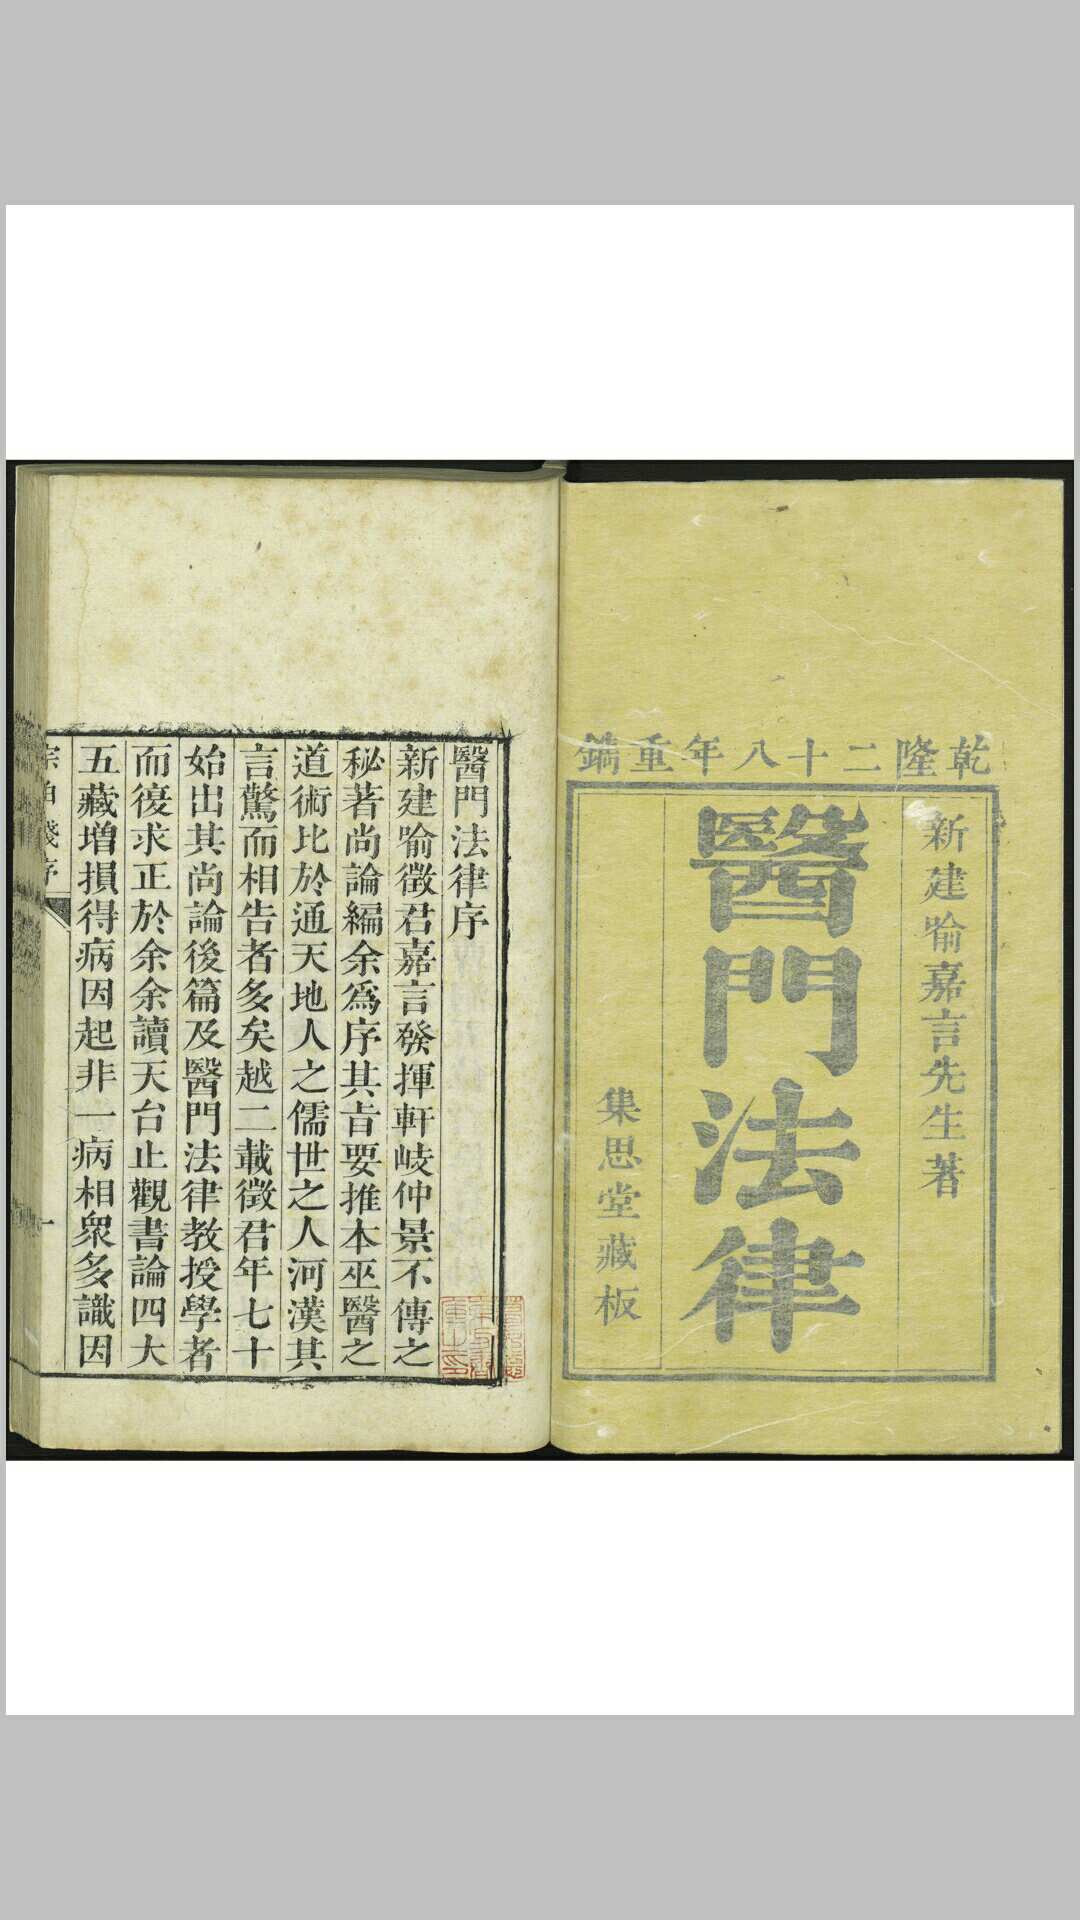 乾隆二十八年重鐫
新建喻嘉言先生著
醫門法律
集思堂藏板
醫門法律序
新建喻徵君嘉言發揮軒岐仲景不傳之
秘著尚論編余爲序其旨要推本巫醫之
道術比於通天地人之儒世之人河漢其
言驚而相告者多矣越二載徵君年七十
始出其尚論後篇及醫門法律教授學者
而復求正於余余讀天台止觀書論四大
五藏增損得病因起非一病相衆多識因
宗伯箋序
一